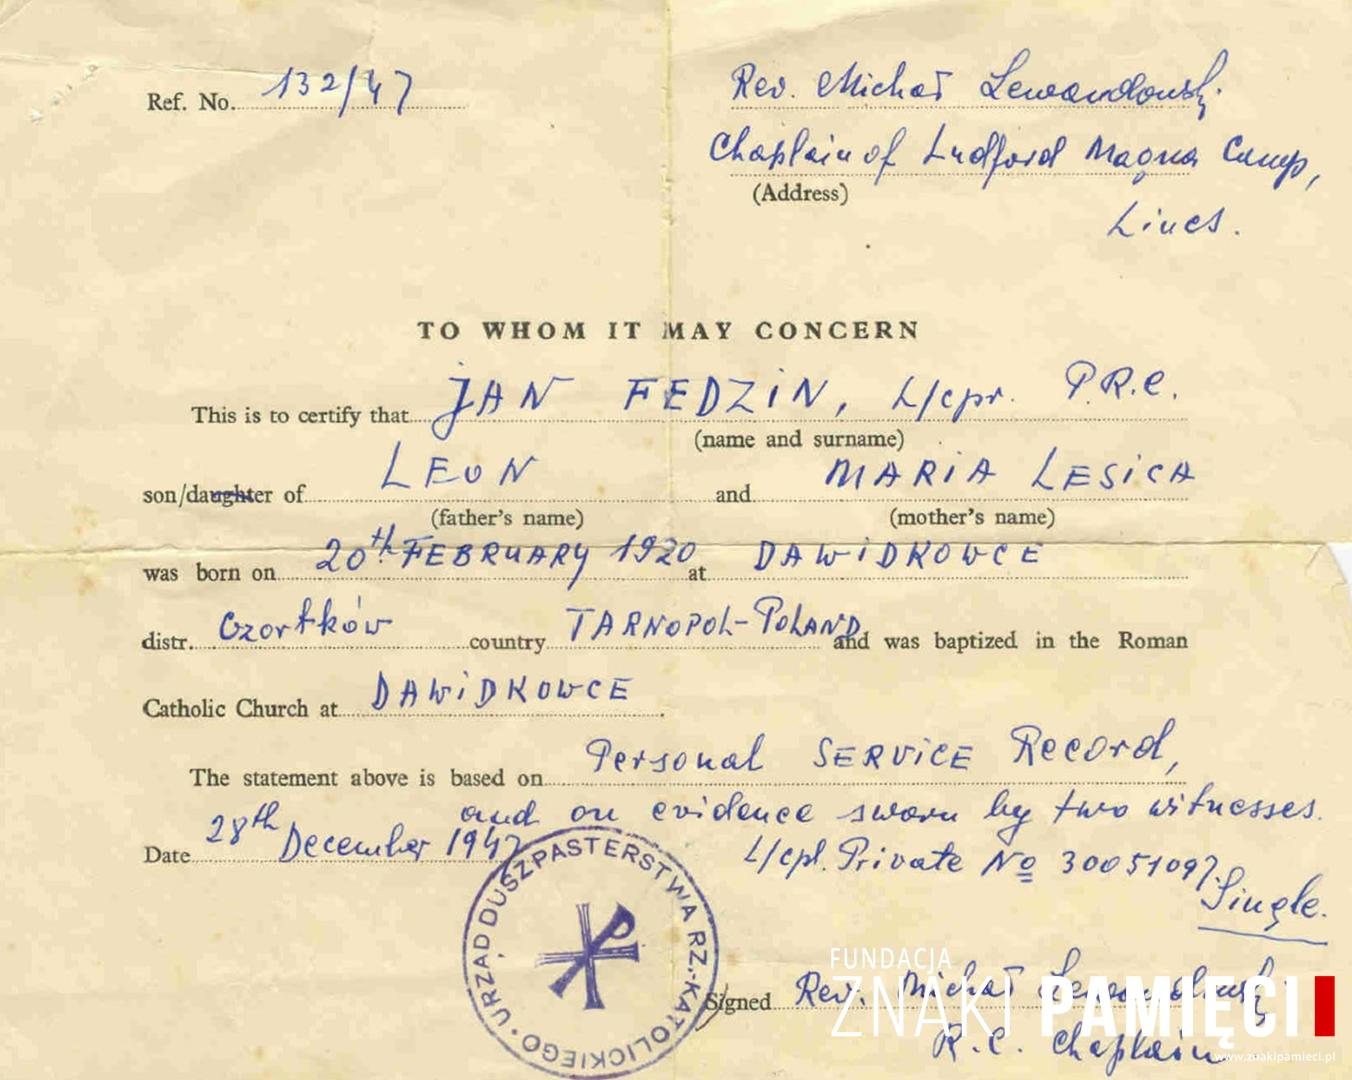 Ref. No. 132/47
Rev. Michał Lewandowski
Chaplain of Ludford Magna Camp,
(Address)
Lincs.
TO WHOM IT MAY CONCERN
This is to certify that JAN FEDZIN, L/cpr. P.R.C.
(name and surname)
son/daughter of LEON and MARIA LESICA
(father's name) (mother's name)
was born on 20th FEBRUARY 1920 at DAWIDKOWCE
distr. Czortków country TARNOPOL-POLAND and was baptized in the Roman
Catholic Church at DAWIDKOWCE
The statement above is based on Personal SERVICE Record,
and on evidence sworn by two witnesses.
Date 28th December 1947
L/cpl. Private No 30051097.
Single.
URZĄD DUSZPASTERSTWA RZ.-KATOLICKIEGO
Signed Rev. Michał Lewandowski
R.C. Chaplain
FUNDACJA
ZNAKI PAMIĘCI
www.znakipamieci.pl